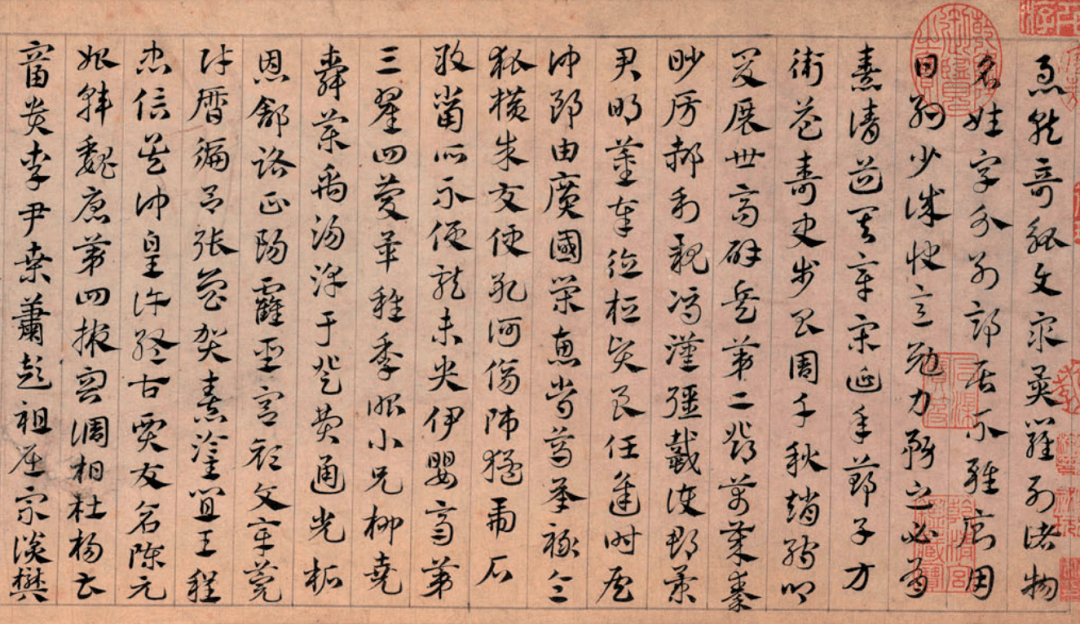 急就奇觚與眾異羅列諸物
名姓字分別部居不雜廁用
日約少誠快意勉力務之必有
憙請道其章宋延年鄭子方
衛益壽史步昌周千秋趙孺卿
爰展世高辟兵第二鄧萬歲秦
眇房郝利親馮漢彊戴護郡景
君明董奉德桓賢良任逢時侯
仲郎由廣國榮惠常烏承祿令
狐橫朱交便孔何傷師猛虎石
敢當所不侵龍未央伊嬰齊第
三翟回慶畢稚季昭小兄柳堯
舜藥禹湯淳于登費通光柘
恩舒路正陽霍聖宮顏文章莞
財曆偏呂張魯賀憙灌宜王程
忠信吳仲皇許終古賈友倉陳元
始韓魏唐第四掖容調柏杜楊曹
富貴李尹桑蕭彭祖屈宗談樊